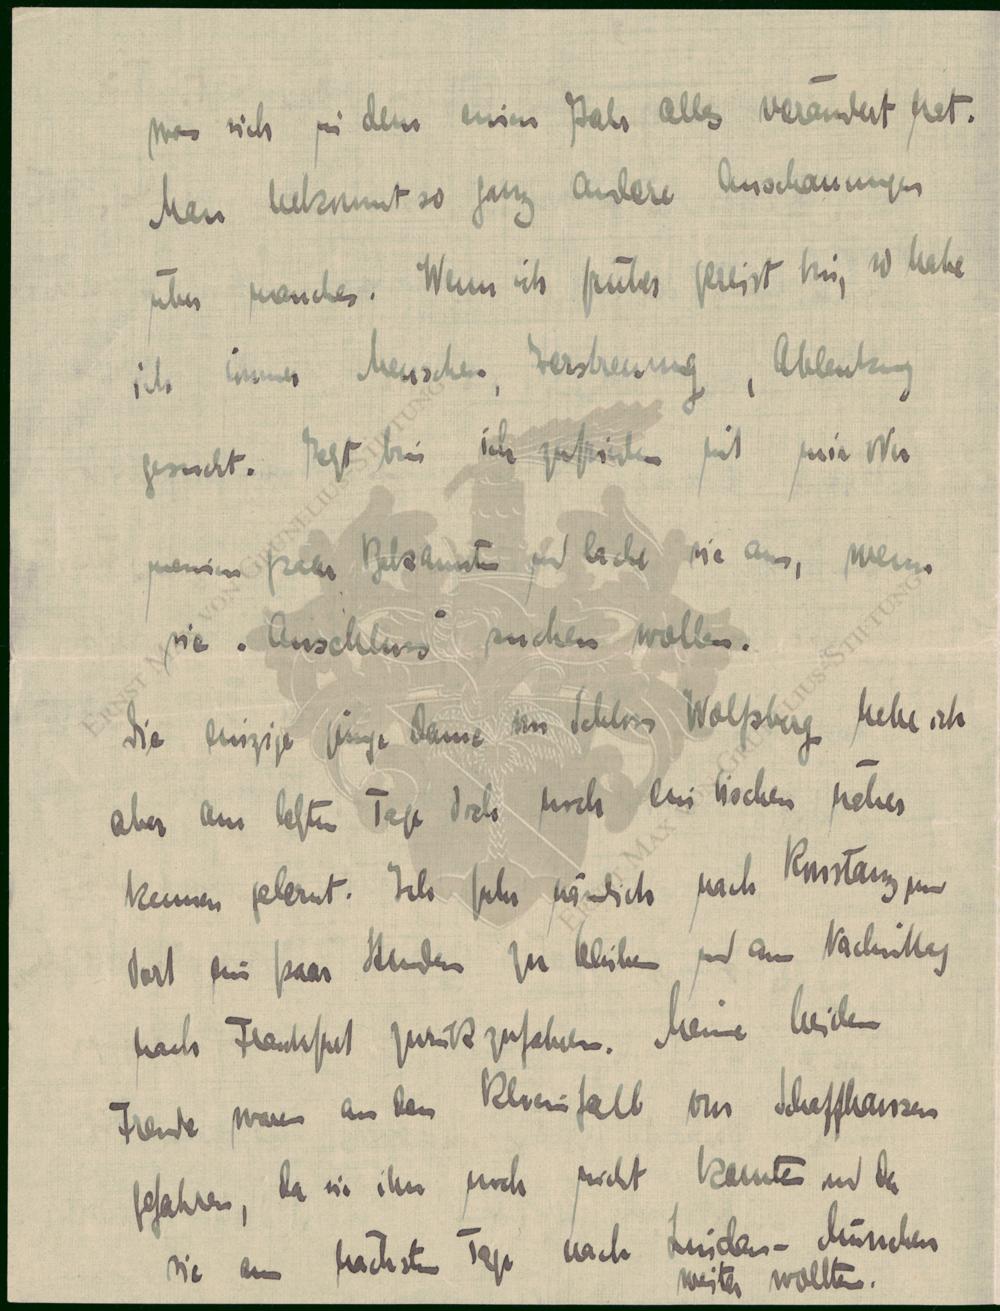 was sich in dem einen Jahr alles verändert hat.
Man bekommt so ganz andere Anschauungen
über manches. Wenn ich früher gereist bin, so habe
ich immer Menschen, Zerstreuung, Ablenkung
gesucht. Jetzt bin ich zufrieden mit mir oder
meinen paar Bekannten und lache sie aus, wenn
sie "Anschluss" suchen wollen.
Die einzige junge Dame von Schloss Wolfsberg habe ich
aber am letzten Tage doch noch ein bischen näher
kennen gelernt. Ich fuhr nämlich nach Konstanz um
dort ein paar Stunden zu bleiben und am Nachmittag
nach Frankfurt zurückzufahren. Meine beiden
Freunde waren an den Rheinfall von Schaffhausen
gefahren, da sie ihn noch nicht kannten und da
sie am nächsten Tage nach Lindau - München
weiter wollten.
ERNST MAX VON GRUNELIUS-STIFTUNG
ERNST MAX VON GRUNELIUS-STIFTUNG